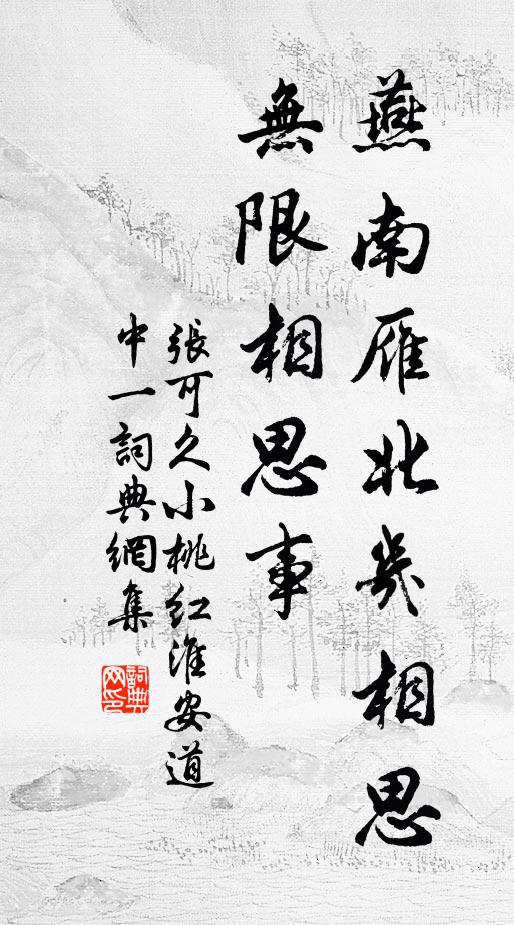 燕南雁北幾相思
無限相思事
張可久小桃紅淮安道
中一詞典網集
詞典
网印